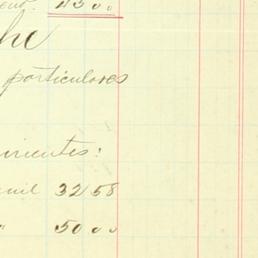 4300
he
particulares
rientes:
mil 3258
" 5000